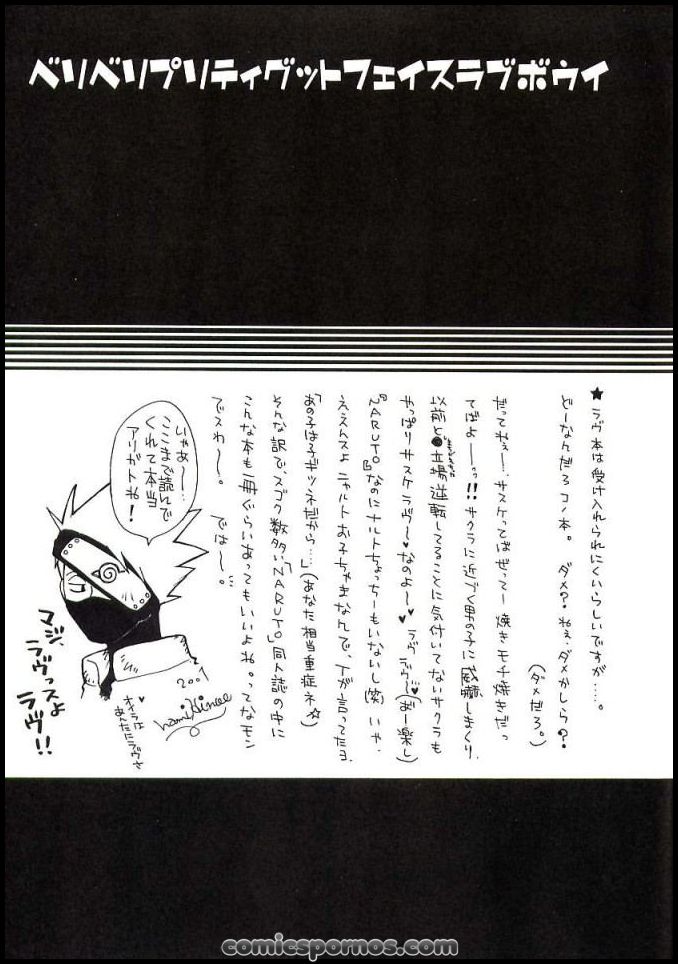 ベリベリプリティグットフェイスラブボウイ
★ラヴ本は受け入れられにくいらしいですが……。
どーなんだろコノ本。ダメ?ねぇ、ダメかしら?
(ダメだろ。)
だってねぇー…、サスケってばぜってー焼きモチ焼きだっ
てばよーーっ!!サクラに近づく男の子に威嚇しまくり、
以前と立場逆転してることに気付いてないサクラも
やっぱりサスケラヴ〜♥なのよ〜♥ラヴラヴ〜♥(おー楽し)
『NARUTO』なのにナルトちょっちーもいないし(笑)いや、
ええんスよナルトお子ちゃまなんで、Tが言ってたヨ
「あの子は子ギツネだから……」(あなた相当重症ネ☆)
そんな訳で、スゴク数多い「NARUTO」同人誌の中に
こんな本も一冊ぐらいあってもいいよね。ってなモン
でスわ〜。では〜。
いやぁー…
ここまで読んで
くれて本当
アリガトね!
マジ、
ラヴっスよ
ラヴ!!
オイラは
あんたにラヴさ
2001
comicspornos.com